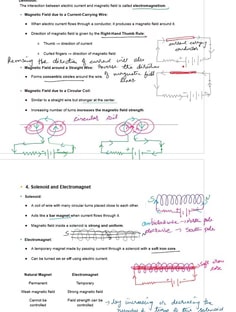 The interaction between electric current and magnetic field is called electromagnetism
Magnetic Field due to a Current-Carrying Wire:
When electric current flows through a conductor, it produces a magnetic field around it.
Direction of magnetic field is given by the Right-Hand Thumb Rule:
Thumb → direction of current
Curled fingers → direction of magnetic field
current carrying
conductor
Reversing the direction of current will also
reverse the direction
of magnetic field
lines
Magnetic Field around a Straight Wire:
Forms concentric circles around the wire.
Magnetic Field due to a Circular Coil:
Similar to a straight wire but stronger at the center.
Increasing number of turns increases the magnetic field strength
circular coil
4. Solenoid and Electromagnet
Solenoid:
A coil of wire with many circular turns placed close to each other.
Acts like a bar magnet when current flows through it.
Magnetic field inside a solenoid is strong and uniform.
Electromagnet:
A temporary magnet made by passing current through a solenoid with a soft iron core.
Can be turned on or off using electric current
Natural Magnet
Electromagnet
Permanent
Temporary
Weak magnetic field
Strong magnetic field
Cannot be
controlled
Field strength can be
controlled
by increasing or decreasing the